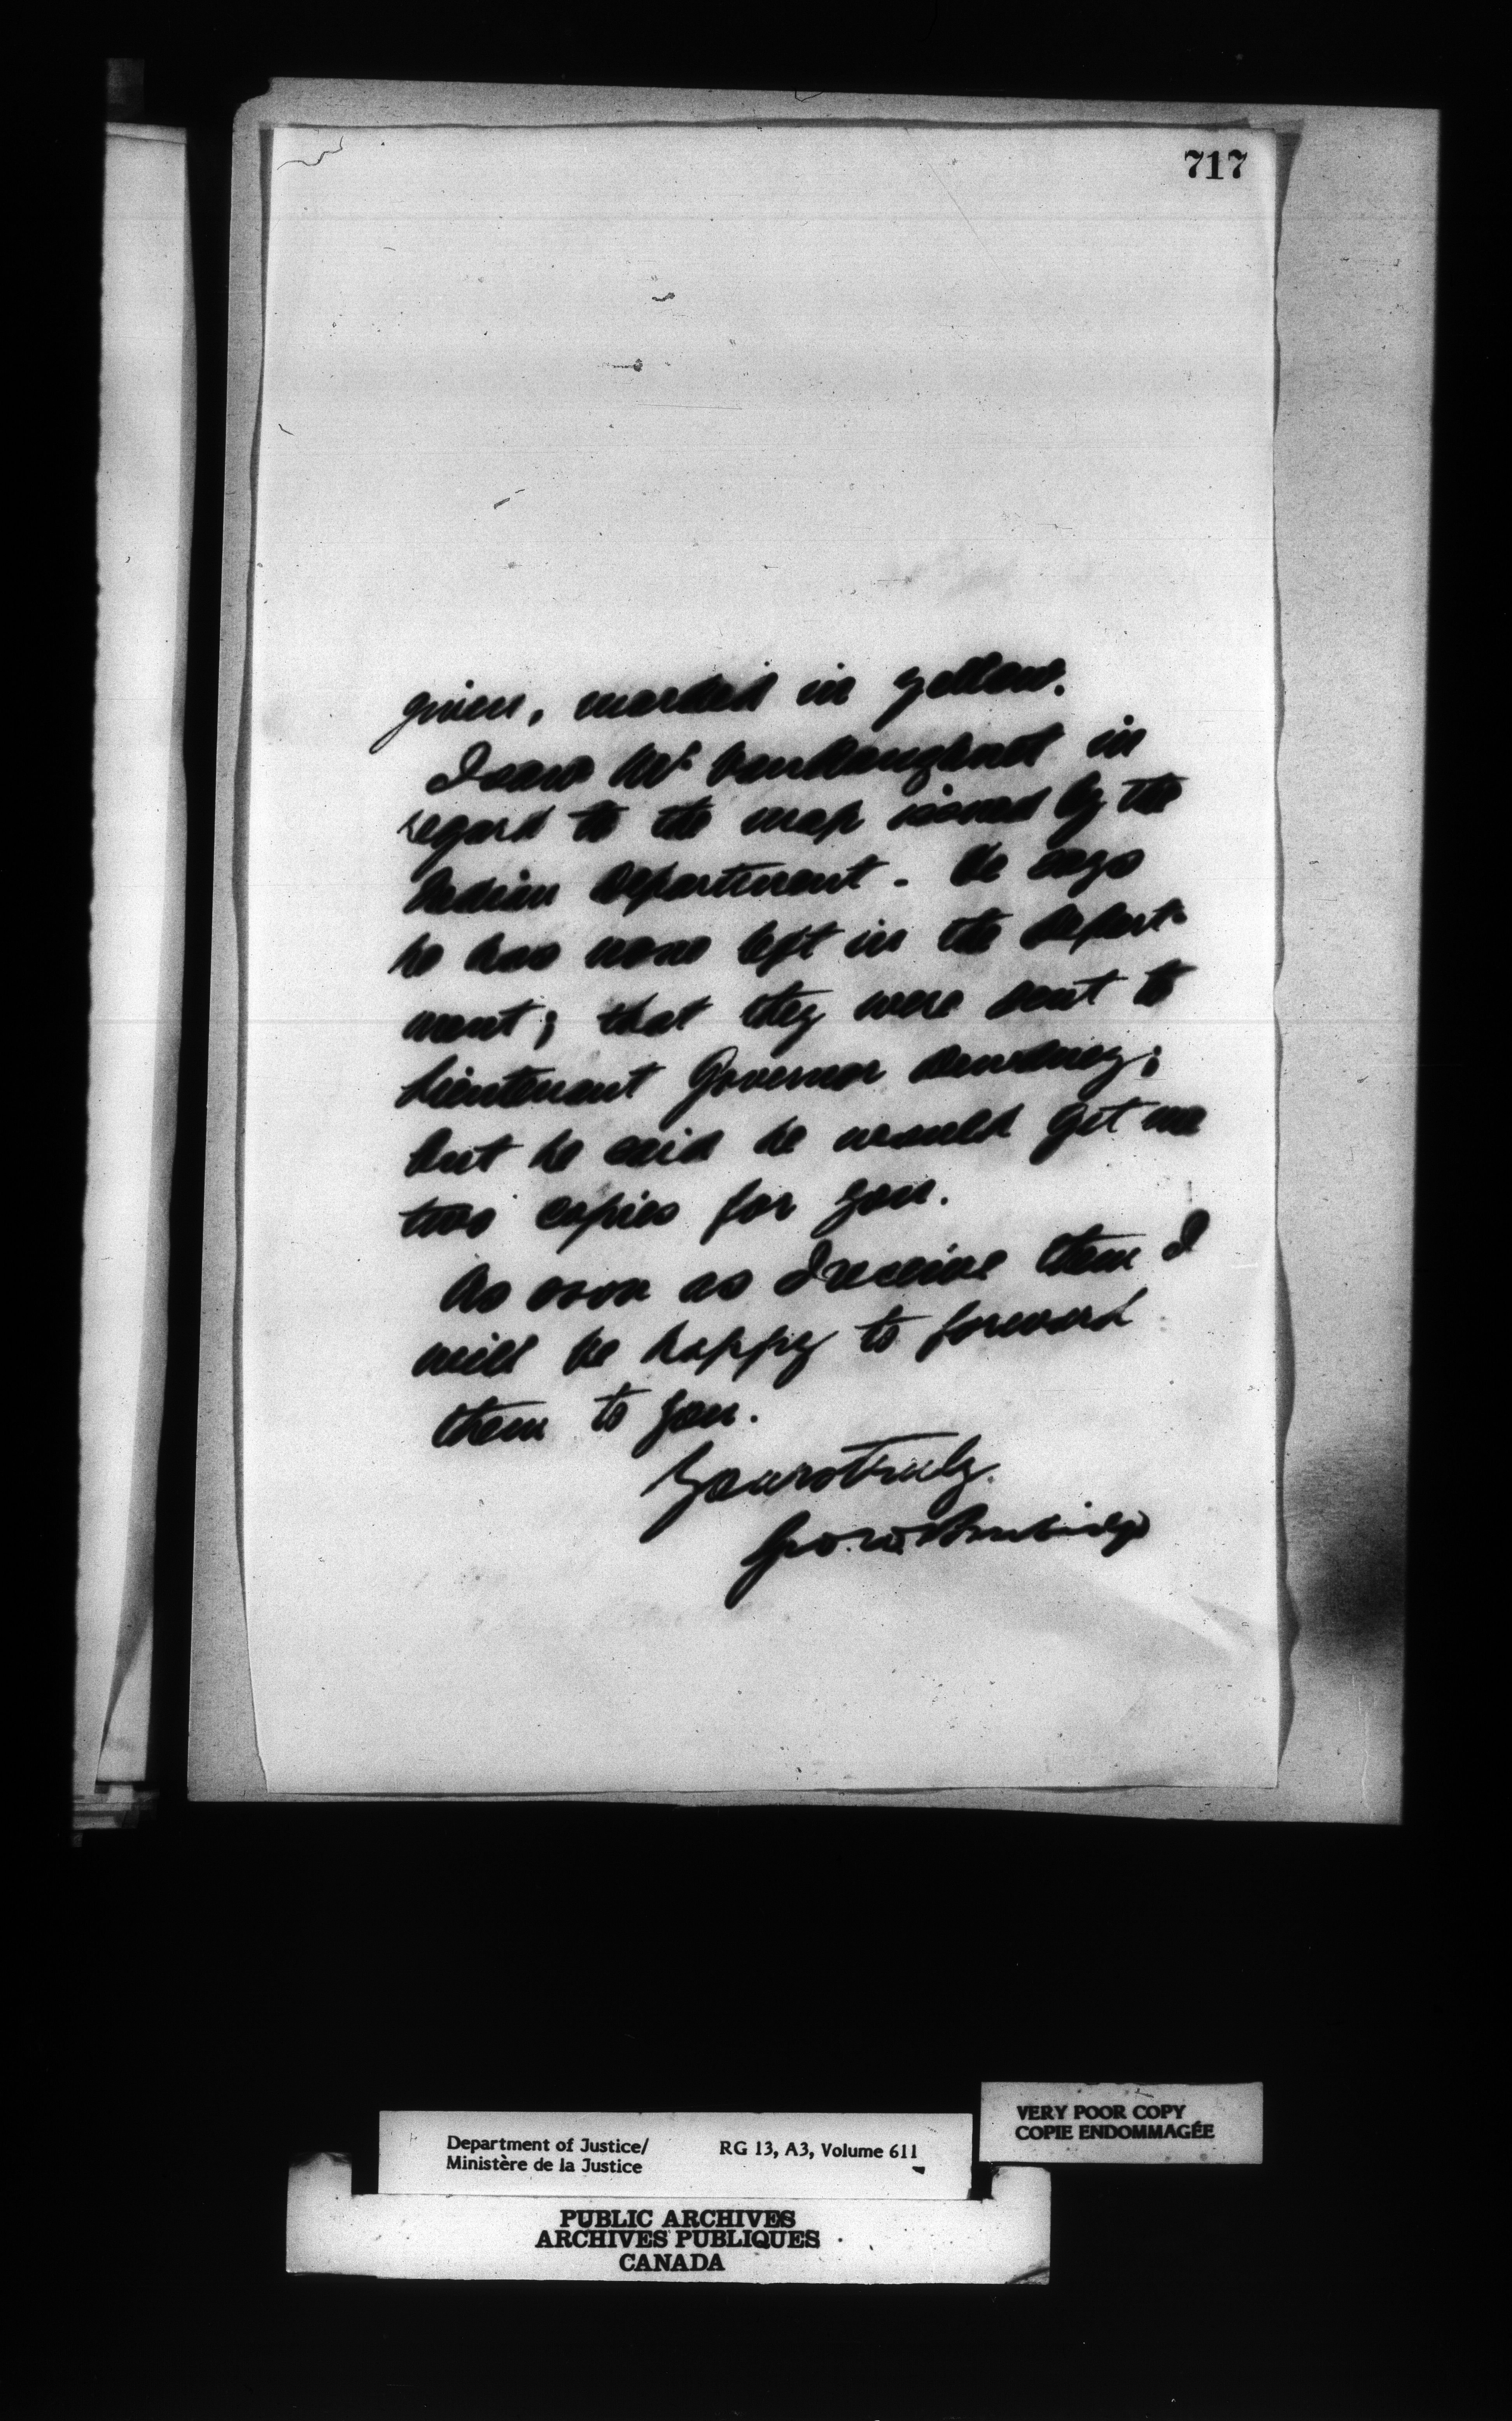 717
given, marked in yellow.
I saw Mr Vankoughnet in
regard to the map issued by the
Indian Department. He says
he has none left in the Depart-
ment; that they were sent to
Lieutenant Governor Dewdney;
but he said he would get me
two copies for you.
As soon as I receive them I
will be happy to forward
them to you.
Yours truly.
Geo. W. Burbidge
VERY POOR COPY
COPIE ENDOMMAGÉE
Department of Justice/ RG 13, A3, Volume 611
Ministère de la Justice
PUBLIC ARCHIVES
ARCHIVES PUBLIQUES
CANADA